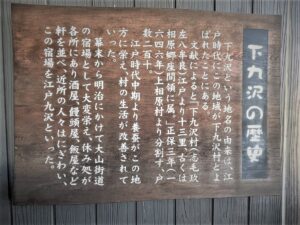 下九沢の歴史
下九沢という地名の由来は、江
戸時代にこの地域が下九沢村とよ
ばれたことにある。
文献によると「下九沢村(志毛玖
左八牟良)江戸より十三里、古くは
相原村座間領に属し、正保三年(一
六四六年)上相原村より分割す、戸
数二百十。
江戸時代中期より養蚕がこの地
方に栄え、村の生活が改善されて
いった。
幕末から明治にかけて大山街道
の宿場として大変栄え、休み処が
各所にあり酒屋、饅頭屋、飯屋など
軒を並べ、近所の人々はにぎわい、
この宿場を江戸九沢といった。